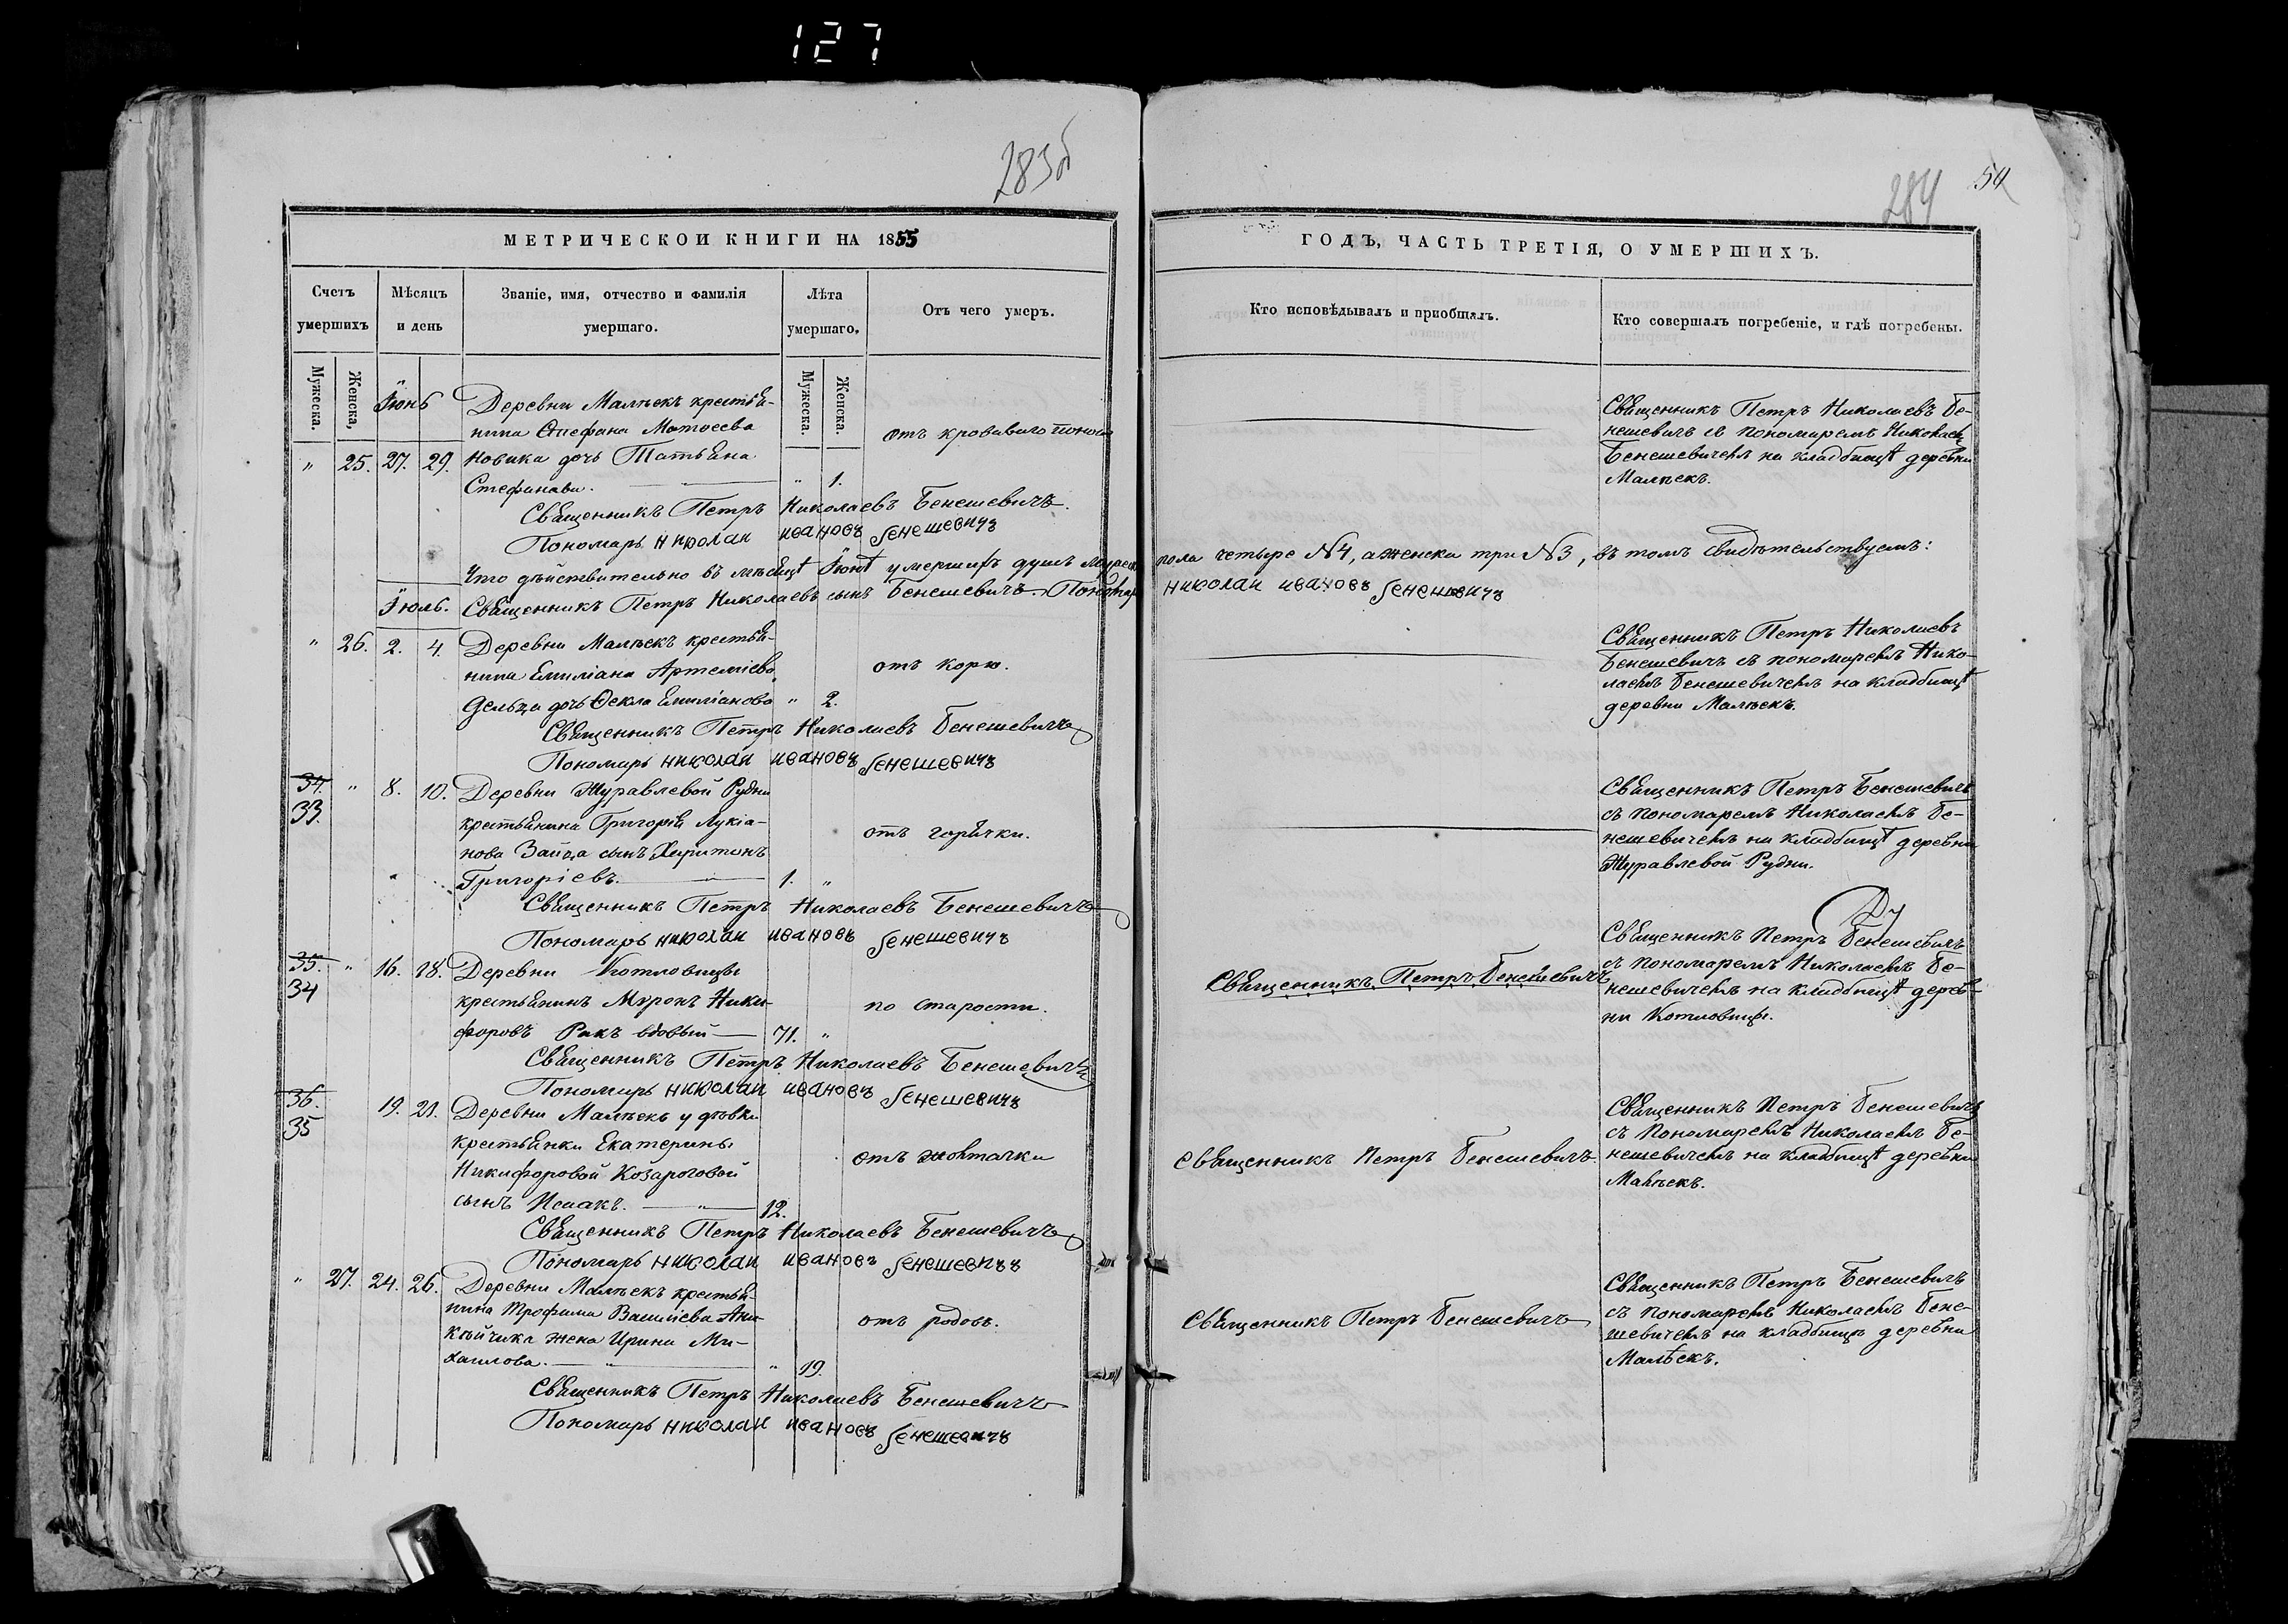 127
283б
МЕТРИЧЕСКОИ КНИГИ НА 1855
Счетъ
умершихъ
Мѣсяцъ
и день
Званіе, имя, отчество и фамилія
умершаго.
Лѣта
умершаго.
Отъ чего умеръ.
Мужеска.
Женска,
Мужеска.
Женска.
Іюнь
Деревни Малѣекъ крестья-
нина Стефана Матѳеева
отъ кроваваго поноса
" 25. 27. 29. Новика дочь Татьяна
Стефанава. " 1.
Священникъ Петръ Николаевъ Бенешевичъ.
Пономарь николаи ивановъ бенешевичъ
Что дѣйствительно въ мѣсяцѣ Іюнѣ умершихъ душъ мужеска
Іюль. Священникъ Петръ Николаевъ сынъ Бенешевичъ. Пономарь
" 26. 2. 4. Деревни Малѣекъ крестья-
нина Емиліана Артеміева
отъ кори.
дочь Ѳекла Емиліанова " 2.
Священникъ Петръ Николаевъ Бенешевичъ
Пономарь николаи ивановъ бенешевичъ
34. " 8. 10. Деревни Журавлевой Рудни
33. крестьянина Григорія Лукіа-
отъ горячки.
нова Зайца сынъ Харитонъ
Григоріевъ. 1. "
Священникъ Петръ Николаевъ Бенешевичъ
Пономарь николаи ивановъ бенешевичъ
35. " 16. 18. Деревни Котловицы
34 крестьянинъ Миронъ Ники-
по старости.
форовъ Ракъ вдовый 71. "
Священникъ Петръ Николаевъ Бенешевичъ
Пономарь николаи ивановъ бенешевичъ
36. 19. 21. Деревни Малѣекъ у дѣвки
35 крестьянки Екатерины
отъ жовтачки
Никифоровой Козароговой
сынъ Исаакъ. " 12.
Священникъ Петръ Николаевъ Бенешевичъ
Пономарь николаи ивановъ бенешевичъ
" 27. 24. 26. Деревни Малѣекъ крестья-
нина Трофима Василіева Ани-
отъ родовъ.
кѣйчика жена Ирина Ми-
хаилова. " " 19.
Священникъ Петръ Николаевъ Бенешевичъ
Пономарь николаи ивановъ бенешевичъ
284
54
ГОДЪ, ЧАСТЬ ТРЕТІЯ, О УМЕРШИХЪ.
Кто исповѣдывалъ и пріобщалъ.
Кто совершалъ погребеніе, и гдѣ погребены.
Священникъ Петръ Николаевъ Бе-
нешевичъ съ пономаремъ Николаемъ
Бенешевичемъ на кладбищѣ деревни
Малѣекъ.
пола четыре №4, а женска три №3, въ томъ свидѣтельствуемъ:
николаи ивановъ бенешевичъ
Священникъ Петръ Николаевъ
Бенешевичъ съ пономаремъ Нико-
лаемъ Бенешевичемъ на кладбищѣ
деревни Малѣекъ.
Священникъ Петръ Бенешевичъ
съ пономаремъ Николаемъ Бе-
нешевичемъ на кладбищѣ деревни
Журавлевой Рудни.
Священникъ Петръ Бенешевичъ
Священникъ Петръ Бенешевичъ
съ пономаремъ Николаемъ Бе-
нешевичемъ на кладбищѣ дерев-
ни Котловицы.
Священникъ Петръ Бенешевичъ.
Священникъ Петръ Бенешевичъ
съ Пономаремъ Николаемъ Бе-
нешевичемъ на кладбищѣ деревни
Малѣекъ.
Священникъ Петръ Бенешевичъ
Священникъ Петръ Бенешевичъ
съ пономаремъ Николаемъ Бене-
шевичемъ на кладбищѣ деревни
Малѣекъ.